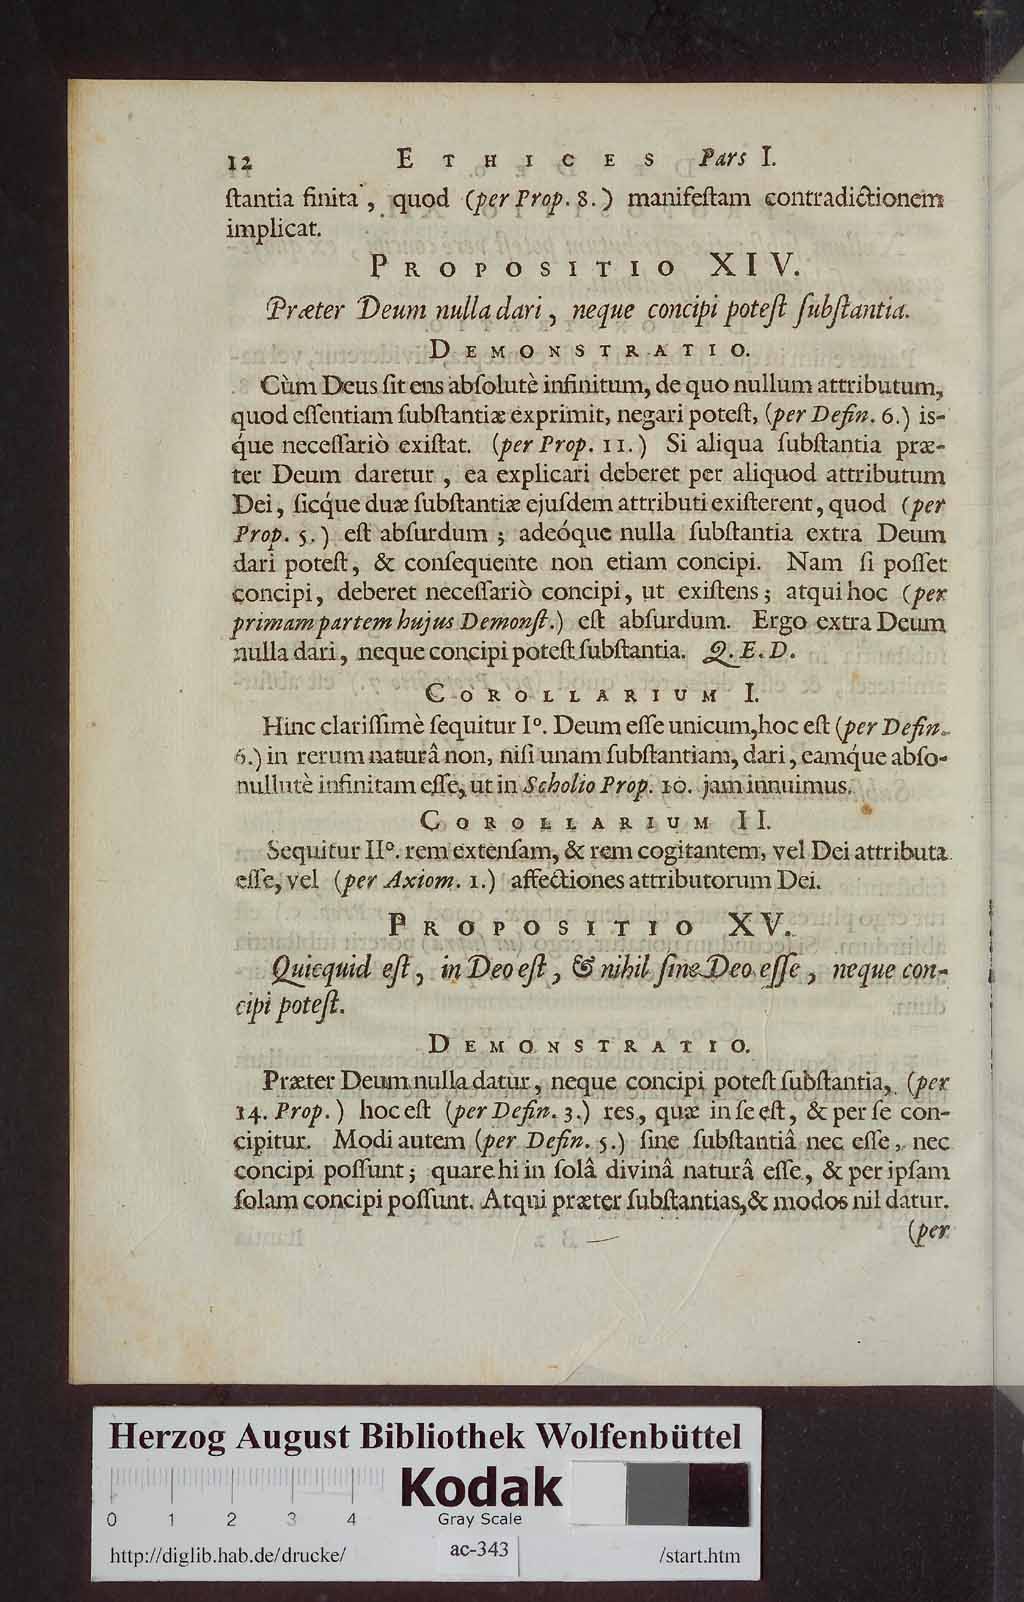 12 ETHICES Pars I.
ſtantia finita, quod (per Prop. 8.) manifeſtam contradictionem
implicat.
PROPOSITIO XIV.
Præter Deum nulla dari, neque concipi poteſt ſubſtantia.
DEMONSTRATIO.
Cùm Deus ſit ens abſolutè infinitum, de quo nullum attributum,
quod eſſentiam ſubſtantiæ exprimit, negari poteſt, (per Defin. 6.) is-
q́ue neceſſariò exiſtat. (per Prop. 11.) Si aliqua ſubſtantia præ-
ter Deum daretur, ea explicari deberet per aliquod attributum
Dei, ſicq́ue duæ ſubſtantiæ ejuſdem attributi exiſterent, quod (per
Prop. 5.) eſt abſurdum; adeóque nulla ſubſtantia extra Deum
dari poteſt, & conſequente non etiam concipi. Nam ſi poſſet
concipi, deberet neceſſariò concipi, ut exiſtens; atqui hoc (per
primam partem hujus Demonſt.) eſt abſurdum. Ergo extra Deum
nulla dari, neque concipi poteſt ſubſtantia. Q. E. D.
COROLLARIUM I.
Hinc clariſſimè ſequitur I°. Deum eſſe unicum, hoc eſt (per Defin.
6.) in rerum naturâ non, niſi unam ſubſtantiam, dari, eamq́ue abſo-
nullutè infinitam eſſe, ut in Scholio Prop. 10. jam innuimus.
COROLLARIUM II.
Sequitur II°. rem extenſam, & rem cogitantem, vel Dei attributa
eſſe, vel (per Axiom. 1.) affectiones attributorum Dei.
PROPOSITIO XV.
Quicquid eſt, in Deo eſt, & nihil ſine Deo eſſe, neque con-
cipi poteſt.
DEMONSTRATIO.
Præter Deum nulla datur, neque concipi poteſt ſubſtantia, (per
14. Prop.) hoc eſt (per Defin. 3.) res, quæ in ſe eſt, & per ſe con-
cipitur. Modi autem (per Defin. 5.) ſine ſubſtantiâ nec eſſe, nec
concipi poſſunt; quare hi in ſolâ divinâ naturâ eſſe, & per ipſam
ſolam concipi poſſunt. Atqui præter ſubſtantias, & modos nil datur.
(per
Herzog August Bibliothek Wolfenbüttel
Kodak
0 1 2 3 4 Gray Scale
http://diglib.hab.de/drucke/ ac-343 /start.htm